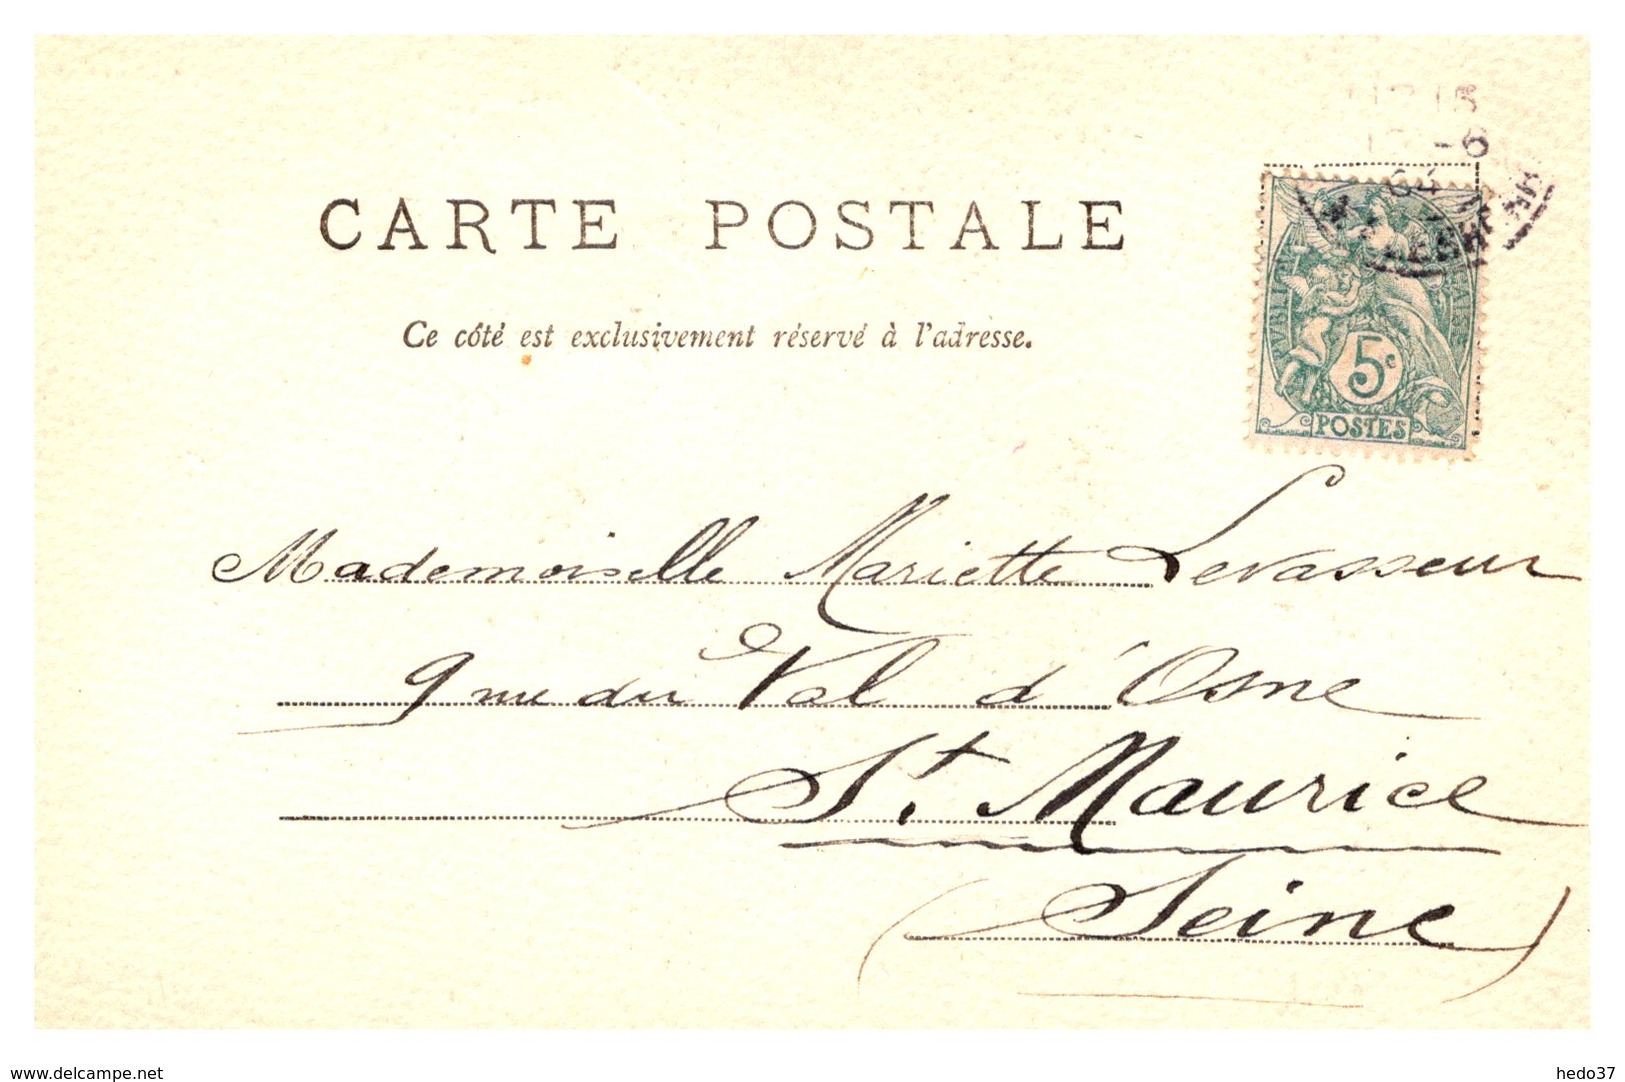 CARTE POSTALE
Ce côté est exclusivement réservé à l'adresse.
04
5c
POSTES
Mademoiselle Mariette Levasseur
9 rue du Val d'Osne
St. Maurice
(Seine)
www.delcampe.net
hedo37